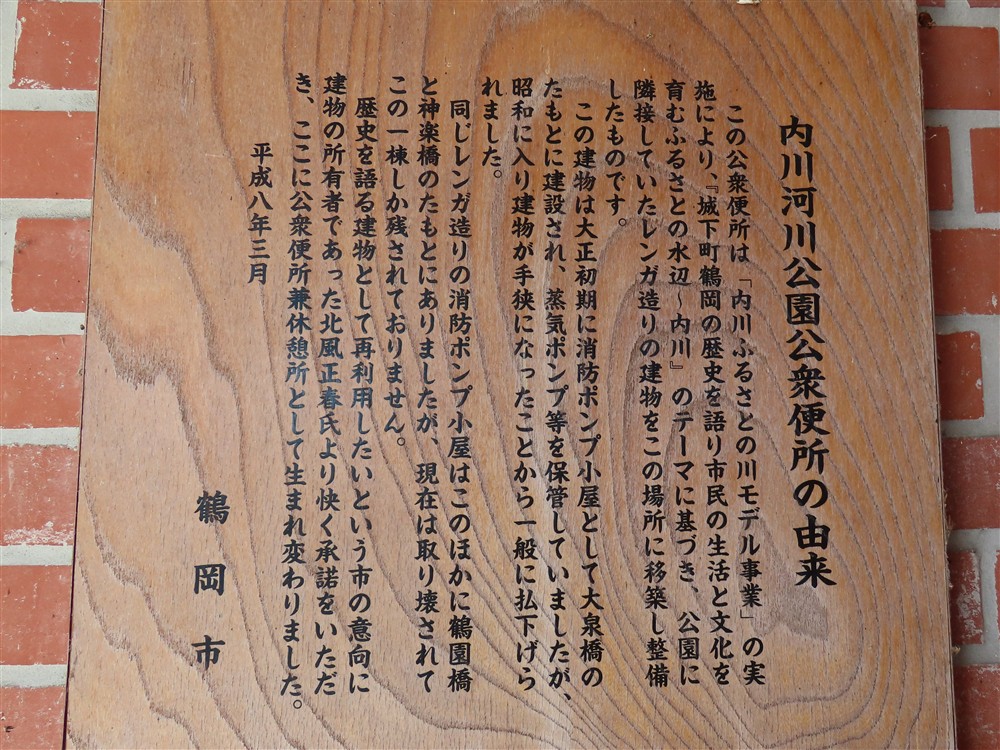 内川河川公園公衆便所の由来
この公衆便所は「内川ふるさとの川モデル事業」の実
施により、『城下町鶴岡の歴史を語り市民の生活と文化を
育むふるさとの水辺～内川』のテーマに基づき、公園に
隣接していたレンガ造りの建物をこの場所に移築し整備
したものです。
この建物は大正初期に消防ポンプ小屋として大泉橋の
たもとに建設され、蒸気ポンプ等を保管していましたが、
昭和に入り建物が手狭になったことから一般に払下げら
れました。
同じレンガ造りの消防ポンプ小屋はこのほかに鶴園橋
と神楽橋のたもとにありましたが、現在は取り壊されて
この一棟しか残されておりません。
歴史を語る建物として再利用したいという市の意向に
建物の所有者であった北風正春氏より快く承諾をいただ
き、ここに公衆便所兼休憩所として生まれ変わりました。
平成八年三月
鶴岡市